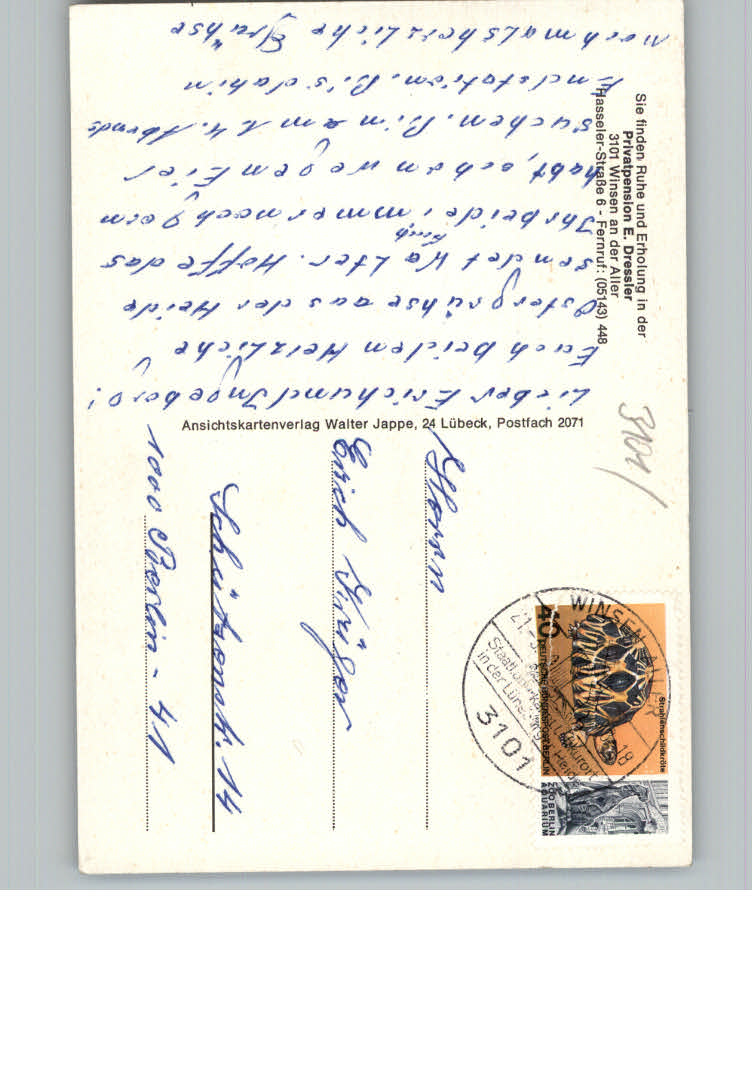 Sie finden Ruhe und Erholung in der
Privatpension E. Dressler
3101 Winsen an der Aller
Hasseler-Straße 6 - Fernruf: (05143) 448
Lieber Erich und Ingeborg!
Euch beiden Herzliche
Ostergrühse aus der Heide
sendet Walter. Hoffe das
Ihr beide immer noch gern
habt, schon wegen Eier
suchen. Bin am 24. Abends
Endstation. Bis dahin
nochmals herzliche Grühse
Ansichtskartenverlag Walter Jappe, 24 Lübeck, Postfach 2071
3101/
Herrn
Erich
Schützenstr. 14
1000 Berlin - 41
WINSEN, ALLER
21.
18
Staatl. anerk. Luftkurort
in der Lüneburger Heide
3101
40
DEUTSCHE BUNDESPOST BERLIN
Strahlenschildkröte
ZOO BERLIN
AQUARIUM